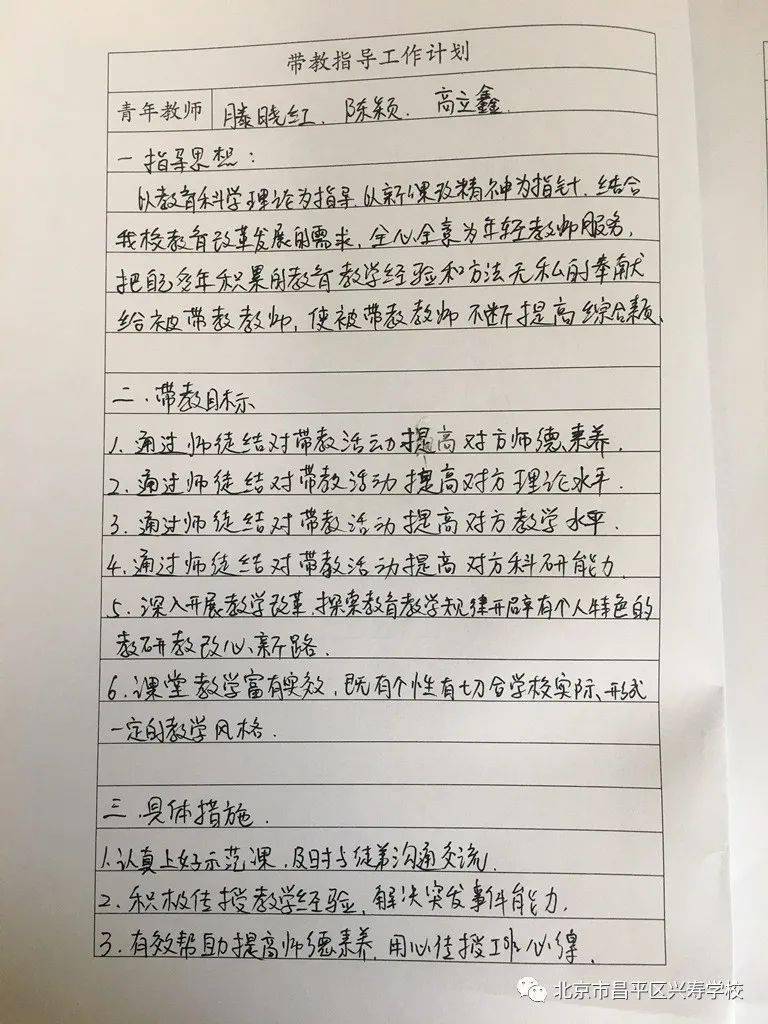 带教指导工作计划
青年教师 滕晓红、陈颖、高立鑫
一 指导思想：
以教育科学理论为指导，以新课改精神为指针，结合
我校教育改革发展的需求，全心全意为年轻教师服务，
把自己多年积累的教育教学经验和方法无私的奉献
给被带教教师，使被带教教师不断提高综合素质、
二．带教目标
1．通过师徒结对带教活动提高对方师德素养．
2．通过师徒结对带教活动提高对方理论水平．
3．通过师徒结对带教活动提高对方教学水平．
4．通过师徒结对带教活动提高对方科研能力．
5．深入开展教学改革，探索教育教学规律开辟有个人特色的
教研教改心新路．
6．课堂教学富有实效，既有个性有切合学校实际、形成
一定的教学风格．
三．具体措施．
1．认真上好示范课，及时与徒弟沟通交流．
2．积极传授教学经验，解决突发事件能力．
3．有效帮助提高师德素养，用心传授工作心得．
北京市昌平区兴寿学校